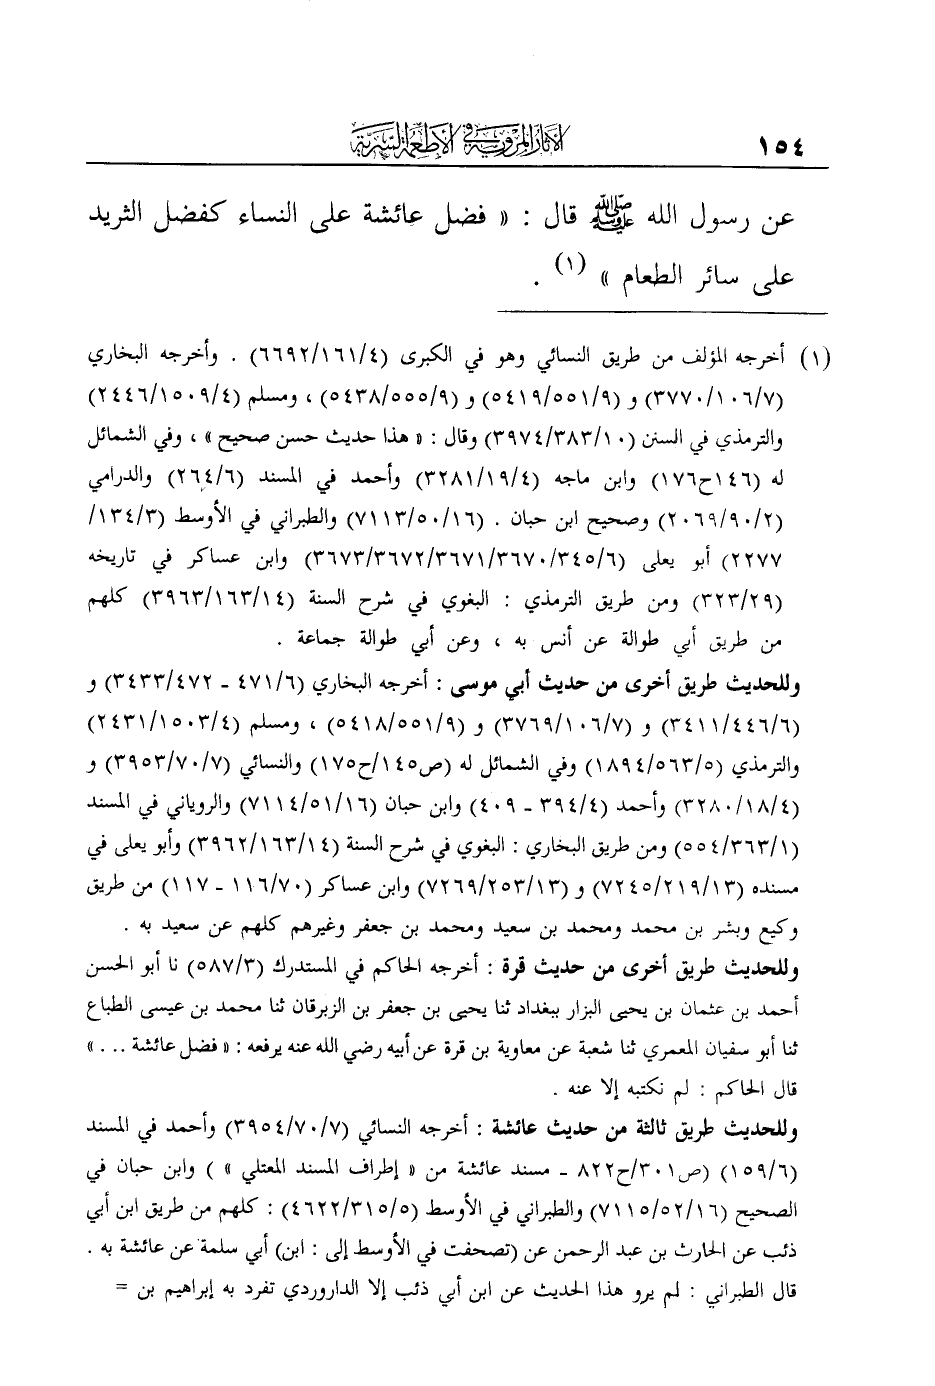 ١٥٤ الآثار المروية في الأطعمة السرية
عن رسول الله ﷺ قال : « فضل عائشة على النساء كفضل الثريد
على سائر الطعام » (١) .
(١) أخرجه المؤلف من طريق النسائي وهو في الكبرى (٦٦٩٢/١٦١/٤) . وأخرجه البخاري
(٣٧٧٠/١٠٦/٧) و (٥٤١٩/٥٥١/٩) و (٥٤٣٨/٥٥٥/٩) ، ومسلم (٢٤٤٦/١٥٠٩/٤)
والترمذي في السنن (٣٩٧٤/٣٨٣/١٠) وقال : « هذا حديث حسن صحيح » ، وفي الشمائل
له (١٤٦ح١٧٦) وابن ماجه (٣٢٨١/١٩/٤) وأحمد في المسند (٢٦٤/٦) والدرامي
(٢٠٦٩/٩٠/٢) وصحيح ابن حبان . (٧١١٣/٥٠/١٦) والطبراني في الأوسط (١٣٤/٣/
٢٢٧٧) أبو يعلى (٣٦٧٣/٣٦٧٢/٣٦٧١/٣٦٧٠/٣٤٥/٦) وابن عساكر في تاريخه
(٣٢٣/٢٩) ومن طريق الترمذي : البغوي في شرح السنة (٣٩٦٣/١٦٣/١٤) كلهم
من طريق أبي طوالة عن أنس به ، وعن أبي طوالة جماعة .
وللحديث طريق أخرى من حديث أبي موسى : أخرجه البخاري (٤٧١/٦ ـ ٣٤٣٣/٤٧٢) و
(٣٤١١/٤٤٦/٦) و (٣٧٦٩/١٠٦/٧) و (٥٤١٨/٥٥١/٩) ، ومسلم (٢٤٣١/١٥٠٣/٤)
والترمذي (١٨٩٤/٥٦٣/٥) وفي الشمائل له (ص١٤٥/ح١٧٥) والنسائي (٣٩٥٣/٧٠/٧) و
(٣٢٨٠/١٨/٤) وأحمد (٣٩٤/٤ ـ ٤٠٩) وابن حبان (٧١١٤/٥١/١٦) والروياني في المسند
(٥٥٤/٣٦٣/١) ومن طريق البخاري : البغوي في شرح السنة (٣٩٦٢/١٦٣/١٤) وأبو يعلى في
مسنده (٧٢٤٥/٢١٩/١٣) و (٧٢٦٩/٢٥٣/١٣) وابن عساكر (١١٦/٧٠ ـ ١١٧) من طريق
وكيع وبشر بن محمد ومحمد بن سعيد ومحمد بن جعفر وغيرهم كلهم عن سعيد به .
وللحديث طريق أخرى من حديث قرة : أخرجه الحاكم في المستدرك (٥٨٧/٣) نا أبو الحسن
أحمد بن عثمان بن يحيى البزار ببغداد ثنا يحيى بن جعفر بن الزبرقان ثنا محمد بن عيسى الطباع
ثنا أبو سفيان المعمري ثنا شعبة عن معاوية بن قرة عن أبيه رضي الله عنه يرفعه : « فضل عائشة ... »
قال الحاكم : لم نكتبه إلا عنه .
وللحديث طريق ثالثة من حديث عائشة : أخرجه النسائي (٣٩٥٤/٧٠/٧) وأحمد في المسند
(١٥٩/٦) (ص٣٠١/ح٨٢٢ ـ مسند عائشة من « إطراف المسند المعتلي » ) وابن حبان في
الصحيح (٧١١٥/٥٢/١٦) والطبراني في الأوسط (٤٦٢٢/٣١٥/٥) : كلهم من طريق ابن أبي
ذئب عن الحارث بن عبد الرحمن عن (تصحفت في الأوسط إلى : ابن) أبي سلمة عن عائشة به .
قال الطبراني : لم يرو هذا الحديث عن ابن أبي ذئب إلا الداروردي تفرد به إبراهيم بن =